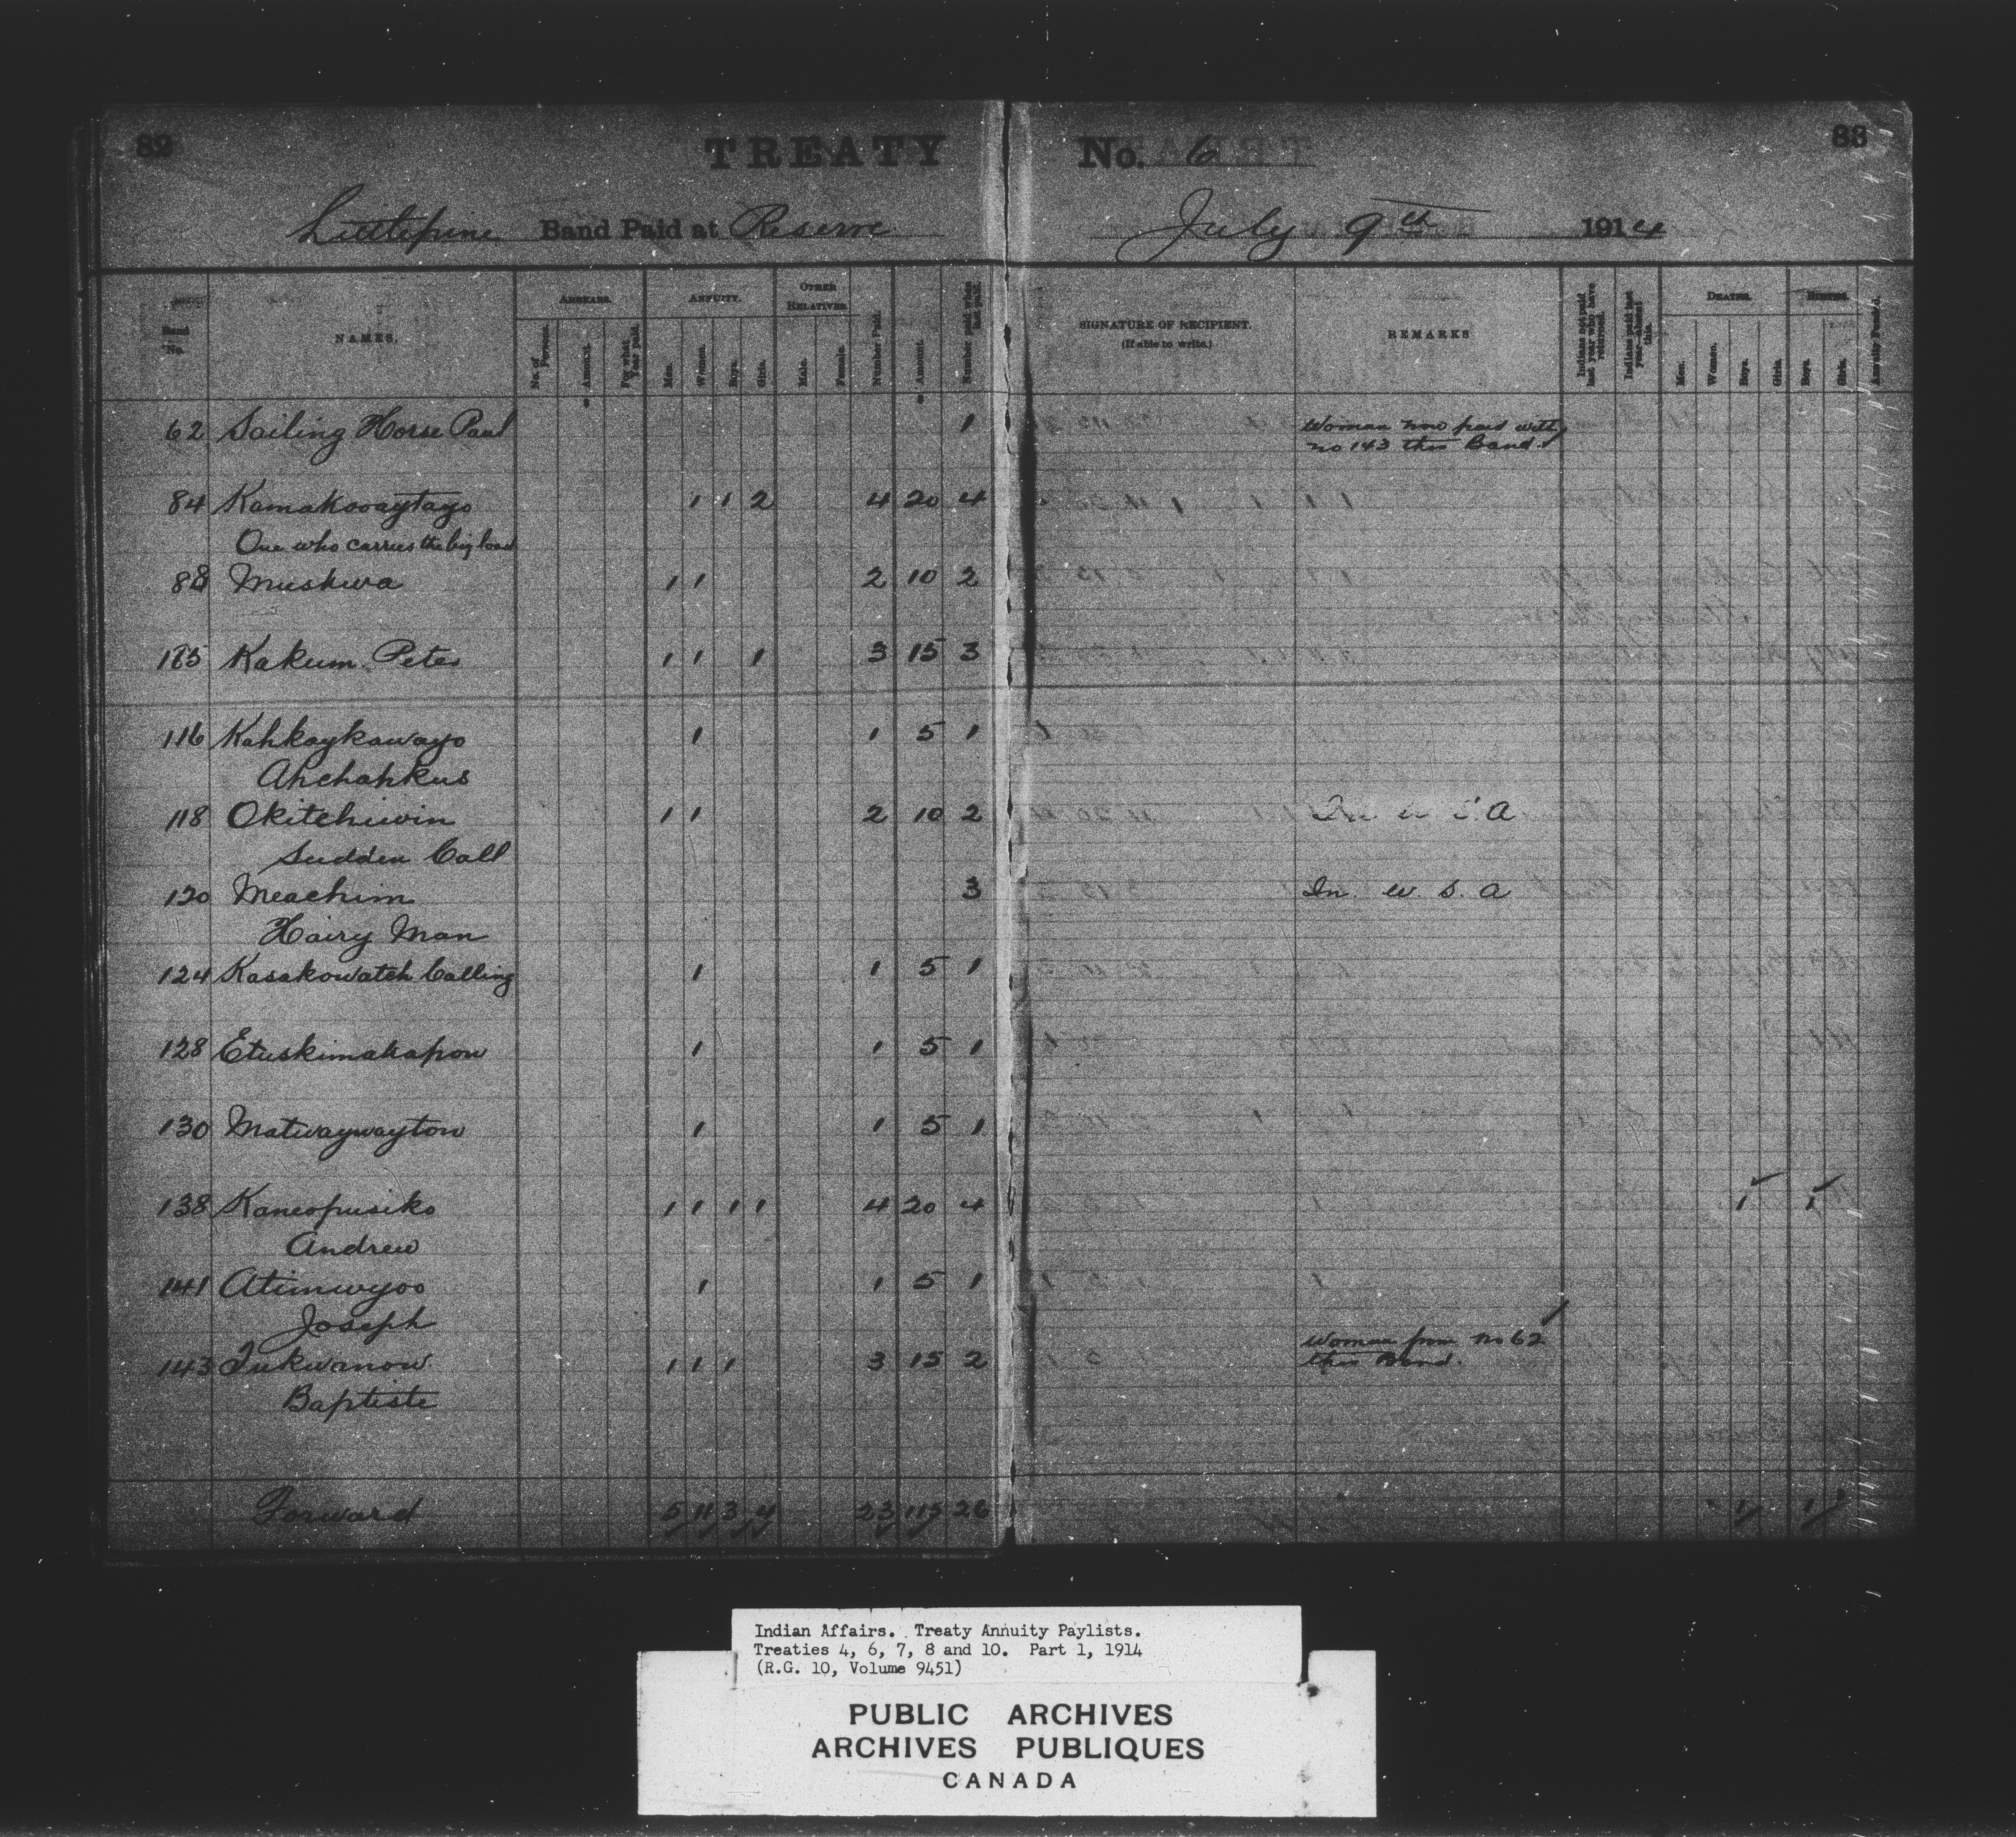 82 TREATY No. 6 83
Littlepine Band Paid at Reserve July 9th 1914
No.
NAMES.
ARREARS.
No. of Persons.
Amount.
For what Year paid.
ANNUITY.
Men.
Women.
Boys.
Girls.
OTHER RELATIVES
Male.
Female.
Number Paid.
Amount.
Number paid when last paid.
SIGNATURE OF RECIPIENT.
(If able to write.)
REMARKS
Indians not paid last year who have returned.
Indians paid last year—absent this.
DEATHS.
Men.
Women.
Boys.
Girls.
BIRTHS.
Boys.
Girls.
62 Sailing Horse Paul 1 Woman now paid with
no 143 this Band.
84 Kamakooaytayo 1 1 2 4 20 4
One who carries the big load
88 Muskwa 1 1 2 10 2
Kakum Peter 1 1 1 3 15 3
116 Kahkaykawayo 1 1 5 1
Ahchahkus
118 Okitchiwin 1 1 2 10 2 In U S. A
Sudden Call
120 Meachim 3 In. U. S. A
Hairy Man
124 Kasakowatch Calling 1 1 5 1
128 Etuskimakapow 1 1 5 1
130 Matwaywaytow 1 1 5 1
138 Kaneopusiko 1 1 1 1 4 20 4 1 1
Andrew
141 Atimwyoo 1 1 5 1
Joseph
143 Tukwanow 1 1 1 3 15 2 Woman from no 62
this Band.
Baptiste
Forward 5 11 3 4 23 115 26 1 1
Indian Affairs. Treaty Annuity Paylists.
Treaties 4, 6, 7, 8 and 10. Part 1, 1914
(R.G. 10, Volume 9451)
PUBLIC ARCHIVES
ARCHIVES PUBLIQUES
CANADA